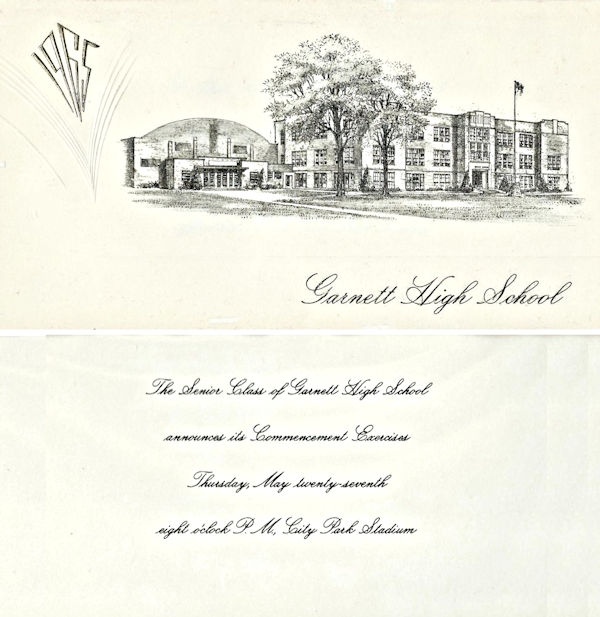 1965
Garnett High School
The Senior Class of Garnett High School
announces its Commencement Exercises
Thursday, May twenty-seventh
eight o'clock P. M., City Park Stadium